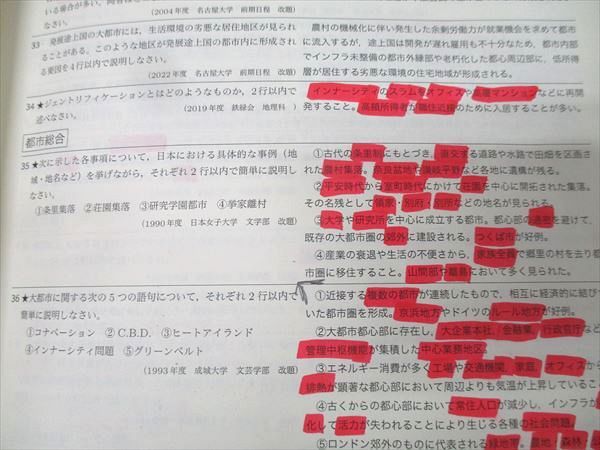 いる場合が多い。
なさい。
(2004年度 名古屋大学 前期日程 改題)
33 発展途上国の大都市には，生活環境の劣悪な居住地区が見られ
ることがある。このような地区が発展途上国の都市内に形成され
る要因を4行以内で説明しなさい。
(2022年度 名古屋大学 前期日程 改題)
34 ★ジェントリフィケーションとはどのようなものか，2行以内で
述べなさい。
(2019年度 鉄緑会 地理科)
都市総合
35 ★次に示した各事項について，日本における具体的な事例（地
域・地名など）を挙げながら，それぞれ2行以内で簡単に説明し
なさい。
①条里集落 ②荘園集落 ③研究学園都市 ④挙家離村
(1990年度 日本女子大学 文学部 改題)
36 ★大都市に関する次の5つの語句について，それぞれ2行以内で
簡単に説明しなさい。
①コナベーション ②C.B.D. ③ヒートアイランド
④インナーシティ問題 ⑤グリーンベルト
(1993年度 成城大学 文芸学部 改題)
農村の機械化に伴い発生した余剰労働力が就業機会を求めて都市
に流入するが，途上国は開発が遅れ雇用も不十分なため，都市内部
でインフラ未整備の都市外縁部や老朽化した都心周辺部に，低所得
層が居住する劣悪な環境の住宅地域が形成される。
インナーシティのスラムをオフィスや高層マンションなどに再開
発すること。高額所得者が職住近接のために入居することが多い。
①古代の条里制にもとづき，直交する道路や水路で田畑を区画さ
れた農村集落。奈良盆地や讃岐平野など各地に遺構が残る。
②平安時代から室町時代にかけて荘園を中心に開拓された集落。
その名残として領家・別府・別所などの地名が見られる。
③大学や研究所を中心に成立する都市。都市部の過密を避けて，
既存の大都市圏の郊外に建設される。つくば市が好例。
④産業の衰退や生活の不便さから，家族全員で郷里の村を去り都
市圏に移住すること。山間部や離島において多く見られた。
①近接する複数の都市が連続したもので，相互に経済的に結びつ
いた都市圏を形成。京浜地方やドイツのルール地方が好例。
②大都市都心部に存在し，大企業本社，金融業，行政官庁など
管理中枢機能が集積した中心業務地区。
③エネルギー消費が多く工場や交通機関，家庭，オフィスから
排熱が顕著な都心部において周辺よりも気温が上昇しているこ
④古くからの都心部において常住人口が減少し，インフラが
化して活力が失われることにより生じる各種の社会問題。
⑤ロンドン郊外のものに代表される緑地帯。農地，森林，